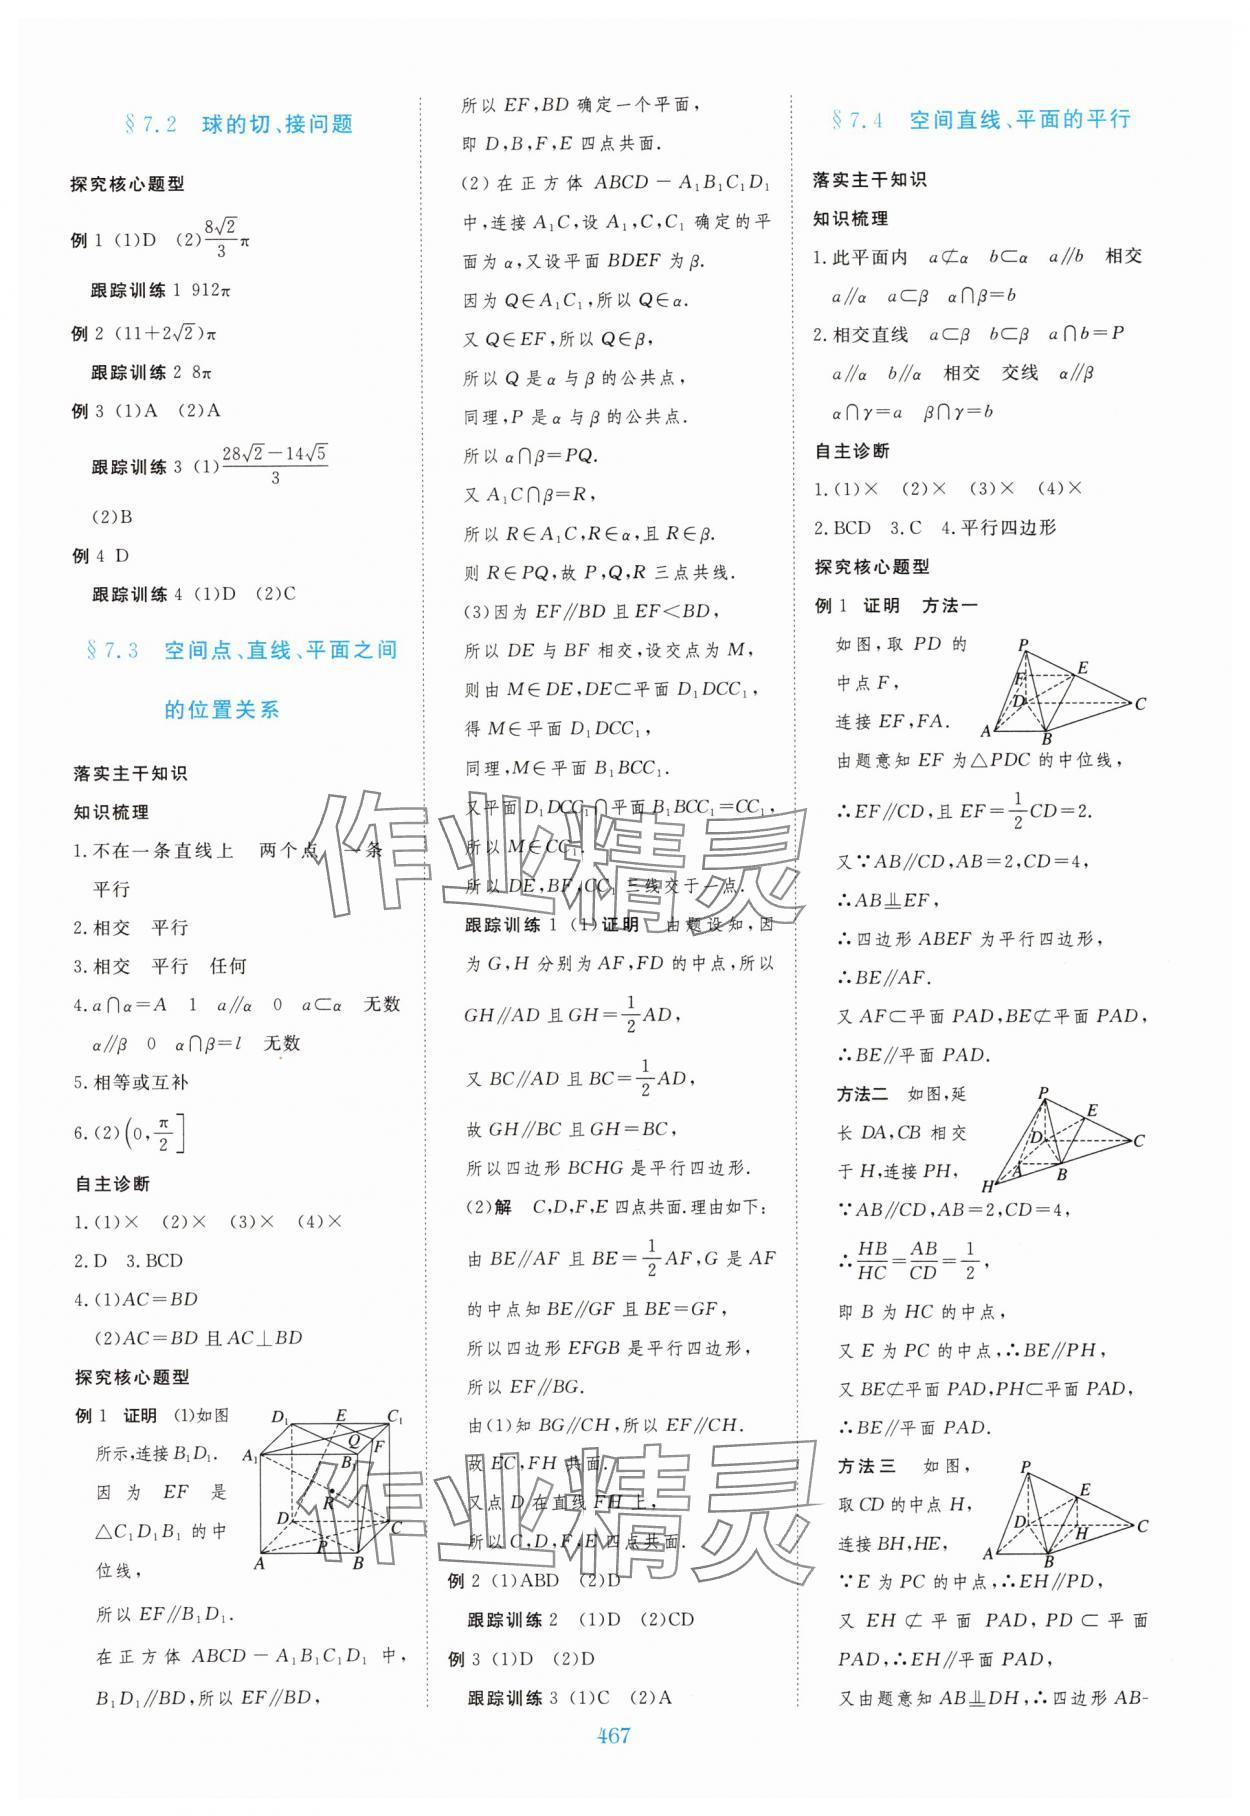 §7.2 球的切、接问题
探究核心题型
例1 (1)D (2)8√2/3 π
跟踪训练1 912π
例2 (11+2√2)π
跟踪训练2 8π
例3 (1)A (2)A
跟踪训练3 (1)(28√2-14√5)/3
(2)B
例4 D
跟踪训练4 (1)D (2)C
§7.3 空间点、直线、平面之间
的位置关系
落实主干知识
知识梳理
1.不在一条直线上 两个点 一条
平行
2.相交 平行
3.相交 平行 任何
4.a∩α=A 1 a∥α 0 a⊂α 无数
α∥β 0 α∩β=l 无数
5.相等或互补
6.(2)(0,π/2]
自主诊断
1.(1)× (2)× (3)× (4)×
2.D 3.BCD
4.(1)AC=BD
(2)AC=BD且AC⊥BD
探究核心题型
例1 证明 (1)如图
所示,连接B₁D₁.
因为 EF 是
△C₁D₁B₁ 的中
位线,
D₁ E C₁
Q F
A₁ B₁
R
D C
P
A B
所以EF∥B₁D₁.
在正方体 ABCD-A₁B₁C₁D₁ 中,
B₁D₁∥BD,所以EF∥BD,
所以EF,BD确定一个平面,
即D,B,F,E四点共面.
(2)在正方体 ABCD-A₁B₁C₁D₁
中,连接A₁C,设A₁,C,C₁确定的平
面为α,又设平面BDEF为β.
因为Q∈A₁C₁,所以Q∈α.
又Q∈EF,所以Q∈β,
所以Q是α与β的公共点,
同理,P是α与β的公共点.
所以α∩β=PQ.
又A₁C∩β=R,
所以R∈A₁C,R∈α,且R∈β.
则R∈PQ,故P,Q,R三点共线.
(3)因为EF∥BD且EF<BD,
所以DE与BF相交,设交点为M,
则由M∈DE,DE⊂平面D₁DCC₁,
得M∈平面D₁DCC₁,
同理,M∈平面B₁BCC₁.
又平面D₁DCC₁∩平面B₁BCC₁=CC₁,
所以M∈CC₁.
所以DE,BF,CC₁三线交于一点.
跟踪训练1 (1)证明 由题设知,因
为G,H分别为AF,FD的中点,所以
GH∥AD且GH=1/2AD,
又BC∥AD且BC=1/2AD,
故GH∥BC且GH=BC,
所以四边形BCHG是平行四边形.
(2)解 C,D,F,E四点共面.理由如下:
由BE∥AF且BE=1/2AF,G是AF
的中点知BE∥GF且BE=GF,
所以四边形EFGB是平行四边形,
所以EF∥BG.
由(1)知BG∥CH,所以EF∥CH.
故EC,FH共面.
又点D在直线FH上,
所以C,D,F,E四点共面.
例2 (1)ABD (2)D
跟踪训练2 (1)D (2)CD
例3 (1)D (2)D
跟踪训练3 (1)C (2)A
§7.4 空间直线、平面的平行
落实主干知识
知识梳理
1.此平面内 a⊄α b⊂α a∥b 相交
a∥α a⊂β α∩β=b
2.相交直线 a⊂β b⊂β a∩b=P
a∥α b∥α 相交 交线 α∥β
α∩γ=a β∩γ=b
自主诊断
1.(1)× (2)× (3)× (4)×
2.BCD 3.C 4.平行四边形
探究核心题型
例1 证明 方法一
如图,取PD的
中点F,
连接EF,FA.
P
F E
D C
A B
由题意知EF为△PDC的中位线,
∴EF∥CD,且EF=1/2CD=2.
又∵AB∥CD,AB=2,CD=4,
∴AB⫫EF,
∴四边形ABEF为平行四边形,
∴BE∥AF.
又AF⊂平面PAD,BE⊄平面PAD,
∴BE∥平面PAD.
方法二 如图,延
长DA,CB相交
于H,连接PH,
P
E
D C
A B
H
∵AB∥CD,AB=2,CD=4,
∴HB/HC=AB/CD=1/2,
即B为HC的中点,
又E为PC的中点,∴BE∥PH,
又BE⊄平面PAD,PH⊂平面PAD,
∴BE∥平面PAD.
方法三 如图,
取CD的中点H,
连接BH,HE,
P
E
D H C
A B
∵E为PC的中点,∴EH∥PD,
又EH⊄平面PAD,PD⊂平面
PAD,∴EH∥平面PAD,
又由题意知AB⫫DH,∴四边形AB-
467
作业精灵
作业精灵